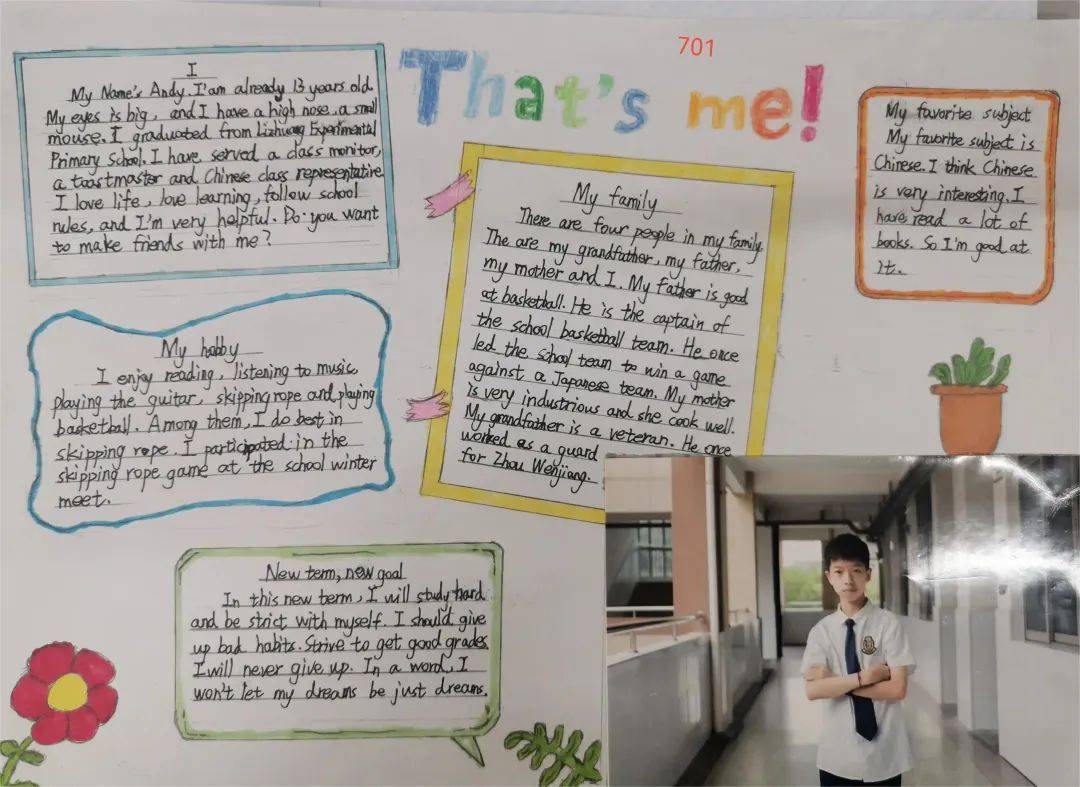 701
That's me!
I
My Name's Andy. I'am already 13 years old.
My eyes is big, and I have a high nose, a small
mouse. I graduated from Lizhuang Experimental
Primary School. I have served a class monitor,
a toastmaster and Chinese class representative
I love life, love learning, follow school
rules, and I'm very helpful. Do you want
to make friends with me?
My hobby
I enjoy reading, listening to music,
playing the guitar, skipping rope and playing
basketball. Among them, I do best in
skipping rope. I participated in the
skipping rope game at the school winter
meet.
My family
There are four people in my family
The are my grandfather, my father,
my mother and I. My father is good
at basketball. He is the captain of
the school basketball team. He once
led the school team to win a game
against a Japanese team. My mother
is very industrious and she cook well.
My grandfather is a veteran. He once
worked as a guard
for Zhou Wenjiang.
My favorite subject
My favorite subject is
Chinese. I think Chinese
is very interesting. I
have read a lot of
books. So I'm good at
it.
New term, new goal
In this new term, I will study hard
and be strict with myself. I should give
up bad habits. Strive to get good grades.
I will never give up. In a word, I
won't let my dreams be just dreams.